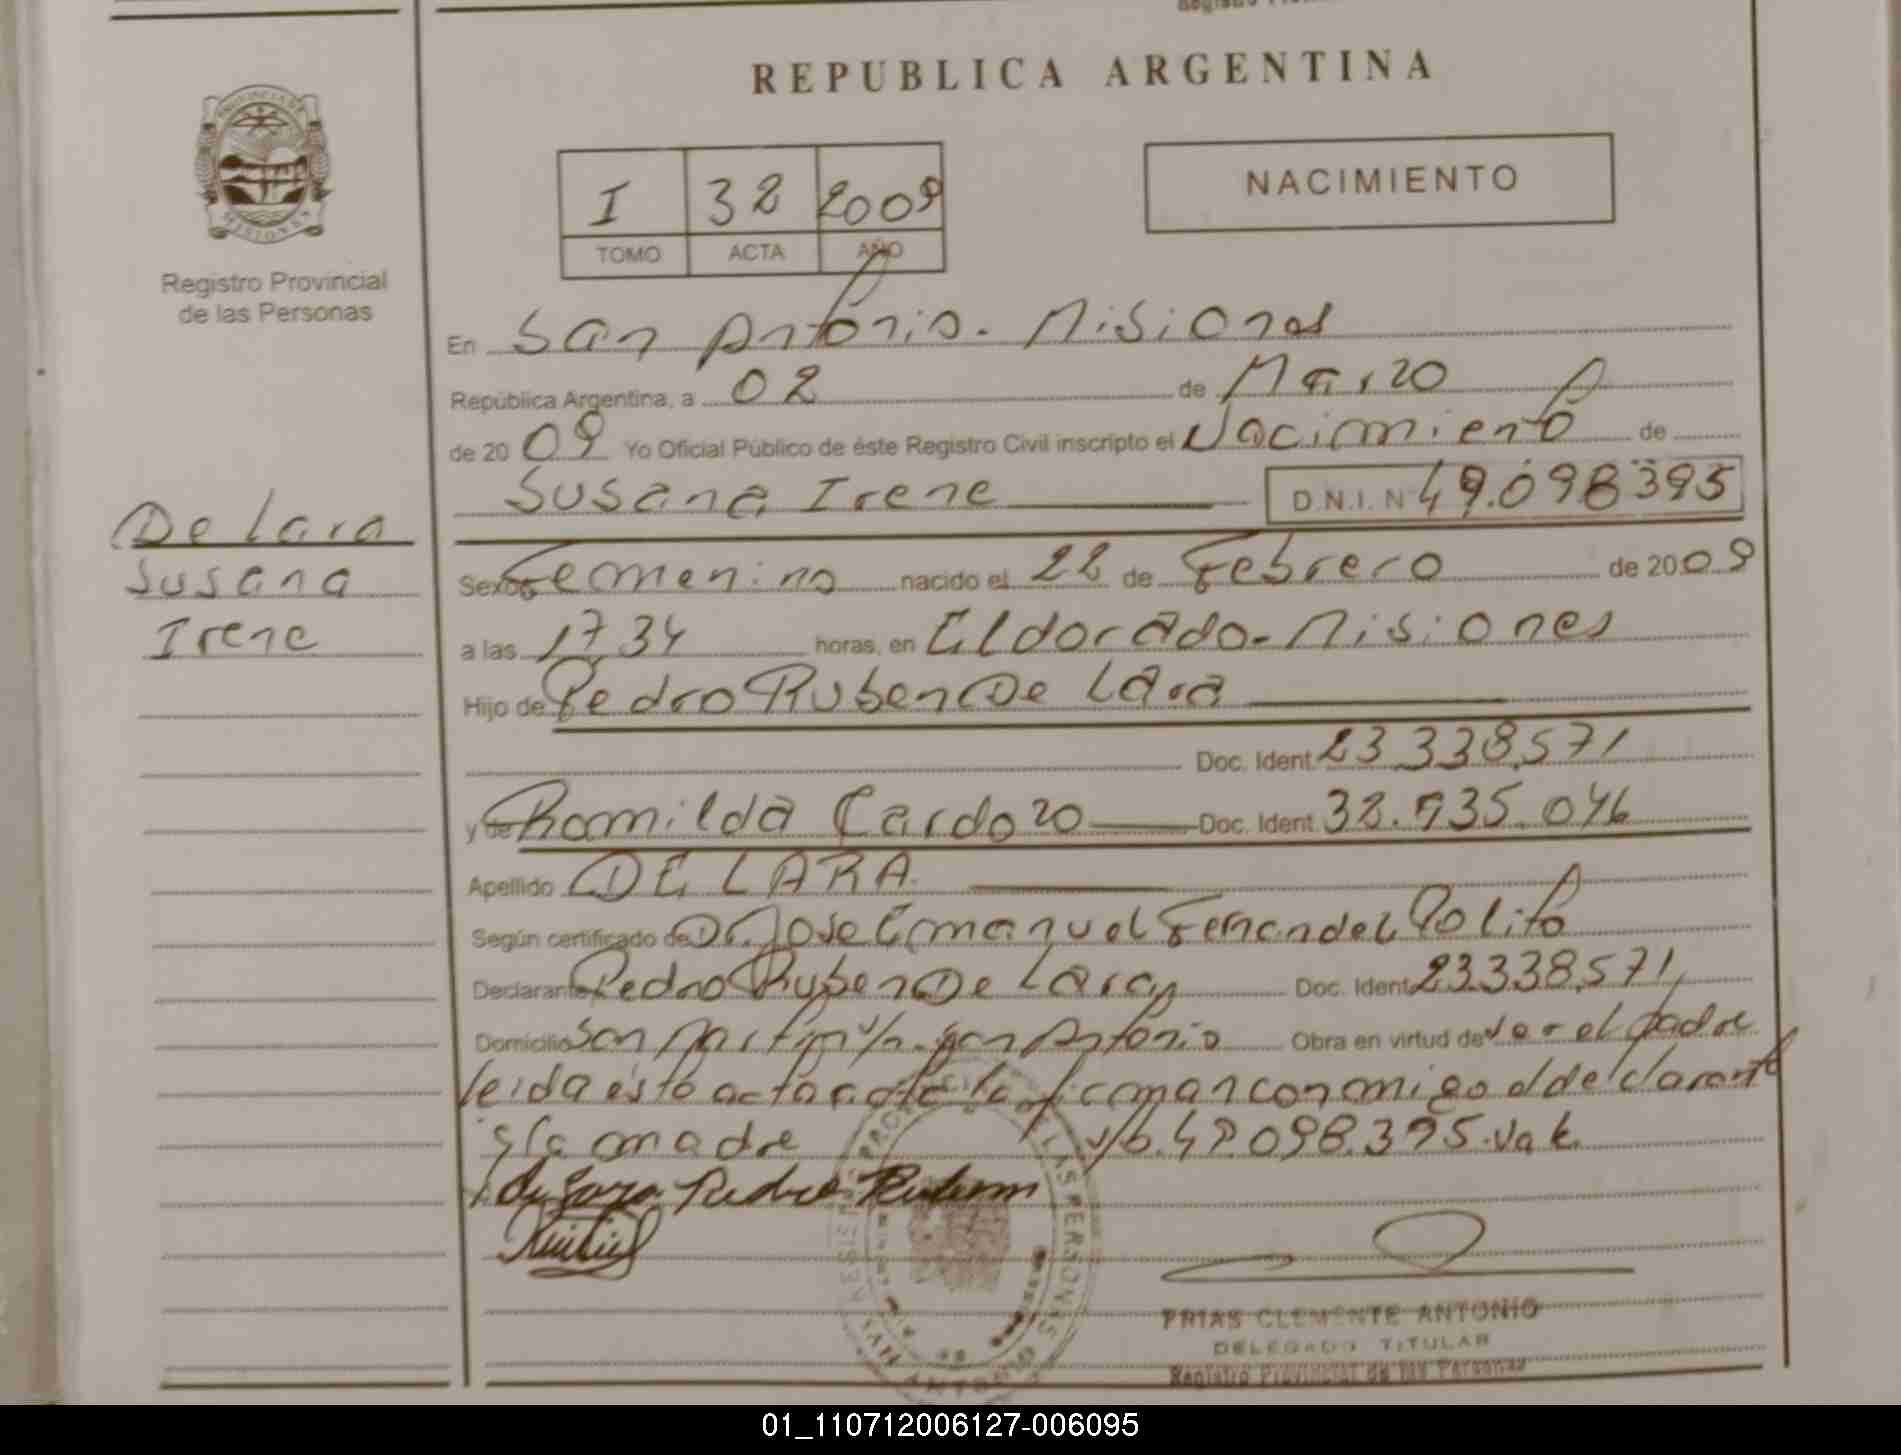 REPUBLICA ARGENTINA
PROVINCIA DE
MISIONES
Registro Provincial
de las Personas
I 32 2009
TOMO ACTA AÑO
NACIMIENTO
En San Antonio - Misiones
República Argentina, a 02 de Marzo
de 2009 Yo Oficial Público de éste Registro Civil inscripto el Nacimiento de
Susana Irene D.N.I. N 49.098395
De Lara
Susana
Irene
Sexo Femenino nacido el 22 de Febrero de 2009
a las 17 34 horas, en Eldorado - Misiones
Hijo de Pedro Ruben De Lara
Doc. Ident. 23.338.571
y de Romilda Cardozo Doc. Ident. 38.735.046
Apellido DE LARA
Según certificado de Dr. Jose Emanuel Fernandez Polito
Declarante Pedro Ruben De Lara Doc. Ident. 23.338.571
Domicilio San Martin s/n. San Antonio Obra en virtud de ser el padre
leida esta acta la firman conmigo el declarante
y la madre 49.098.395. Vale.
De Lara Pedro Ruben
FRIAS CLEMENTE ANTONIO
DELEGADO TITULAR
Registro Provincial de las Personas
01_110712006127-006095